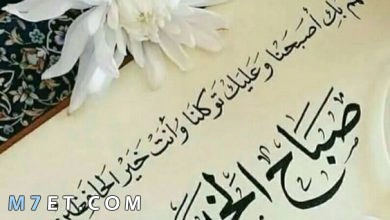 بك أصبحنا وعليك توكلنا وأنت خير الحافظين
صباح الخ
M7ET.COM